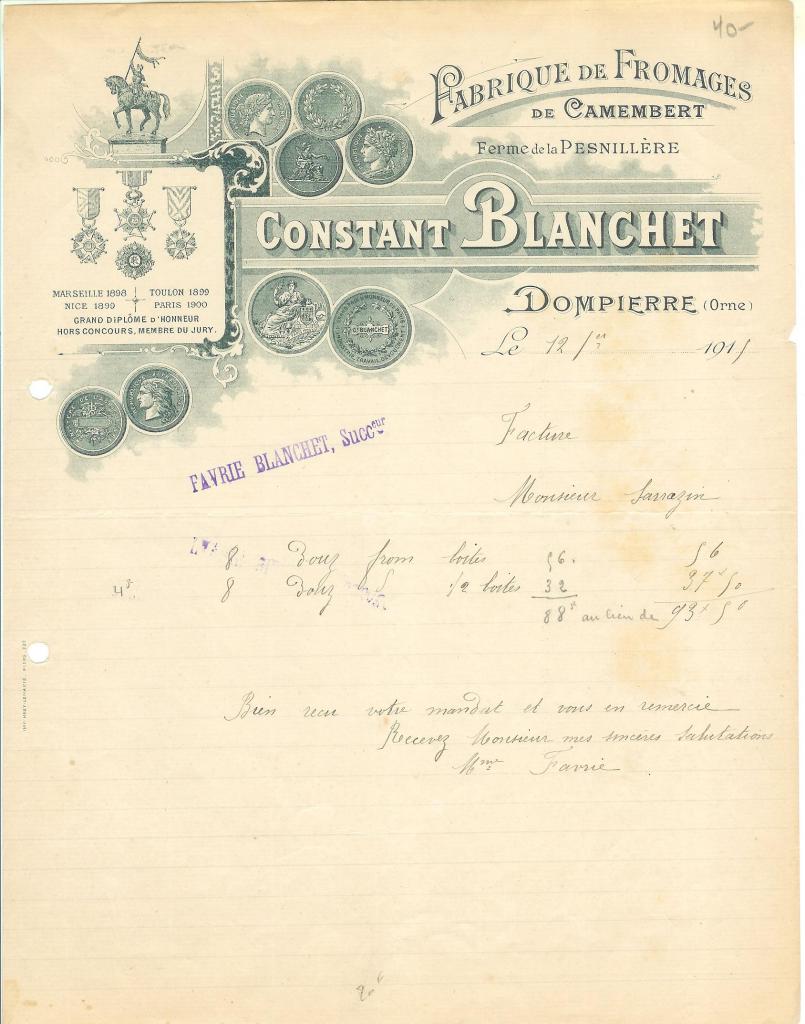 40-
FABRIQUE DE FROMAGES
DE CAMEMBERT
Ferme de la PESNILLÈRE
CONSTANT BLANCHET
MARSEILLE 1898 TOULON 1899
NICE 1899 PARIS 1900
GRAND DIPLÔME D'HONNEUR
HORS CONCOURS, MEMBRE DU JURY.
Ct BLANCHET
DOMPIERRE (Orne)
Le 12 1915
Facture
FAVRIE BLANCHET, Succeur
Monsieur Sarrazin
8 Douz from boites 56. 56
8 Douz 1/2 boites 32 37f50
88f au lieu de 93f50
Bien recu votre mandat et vous en remercie
Recevez Monsieur mes sincères salutations
Mme Favrie